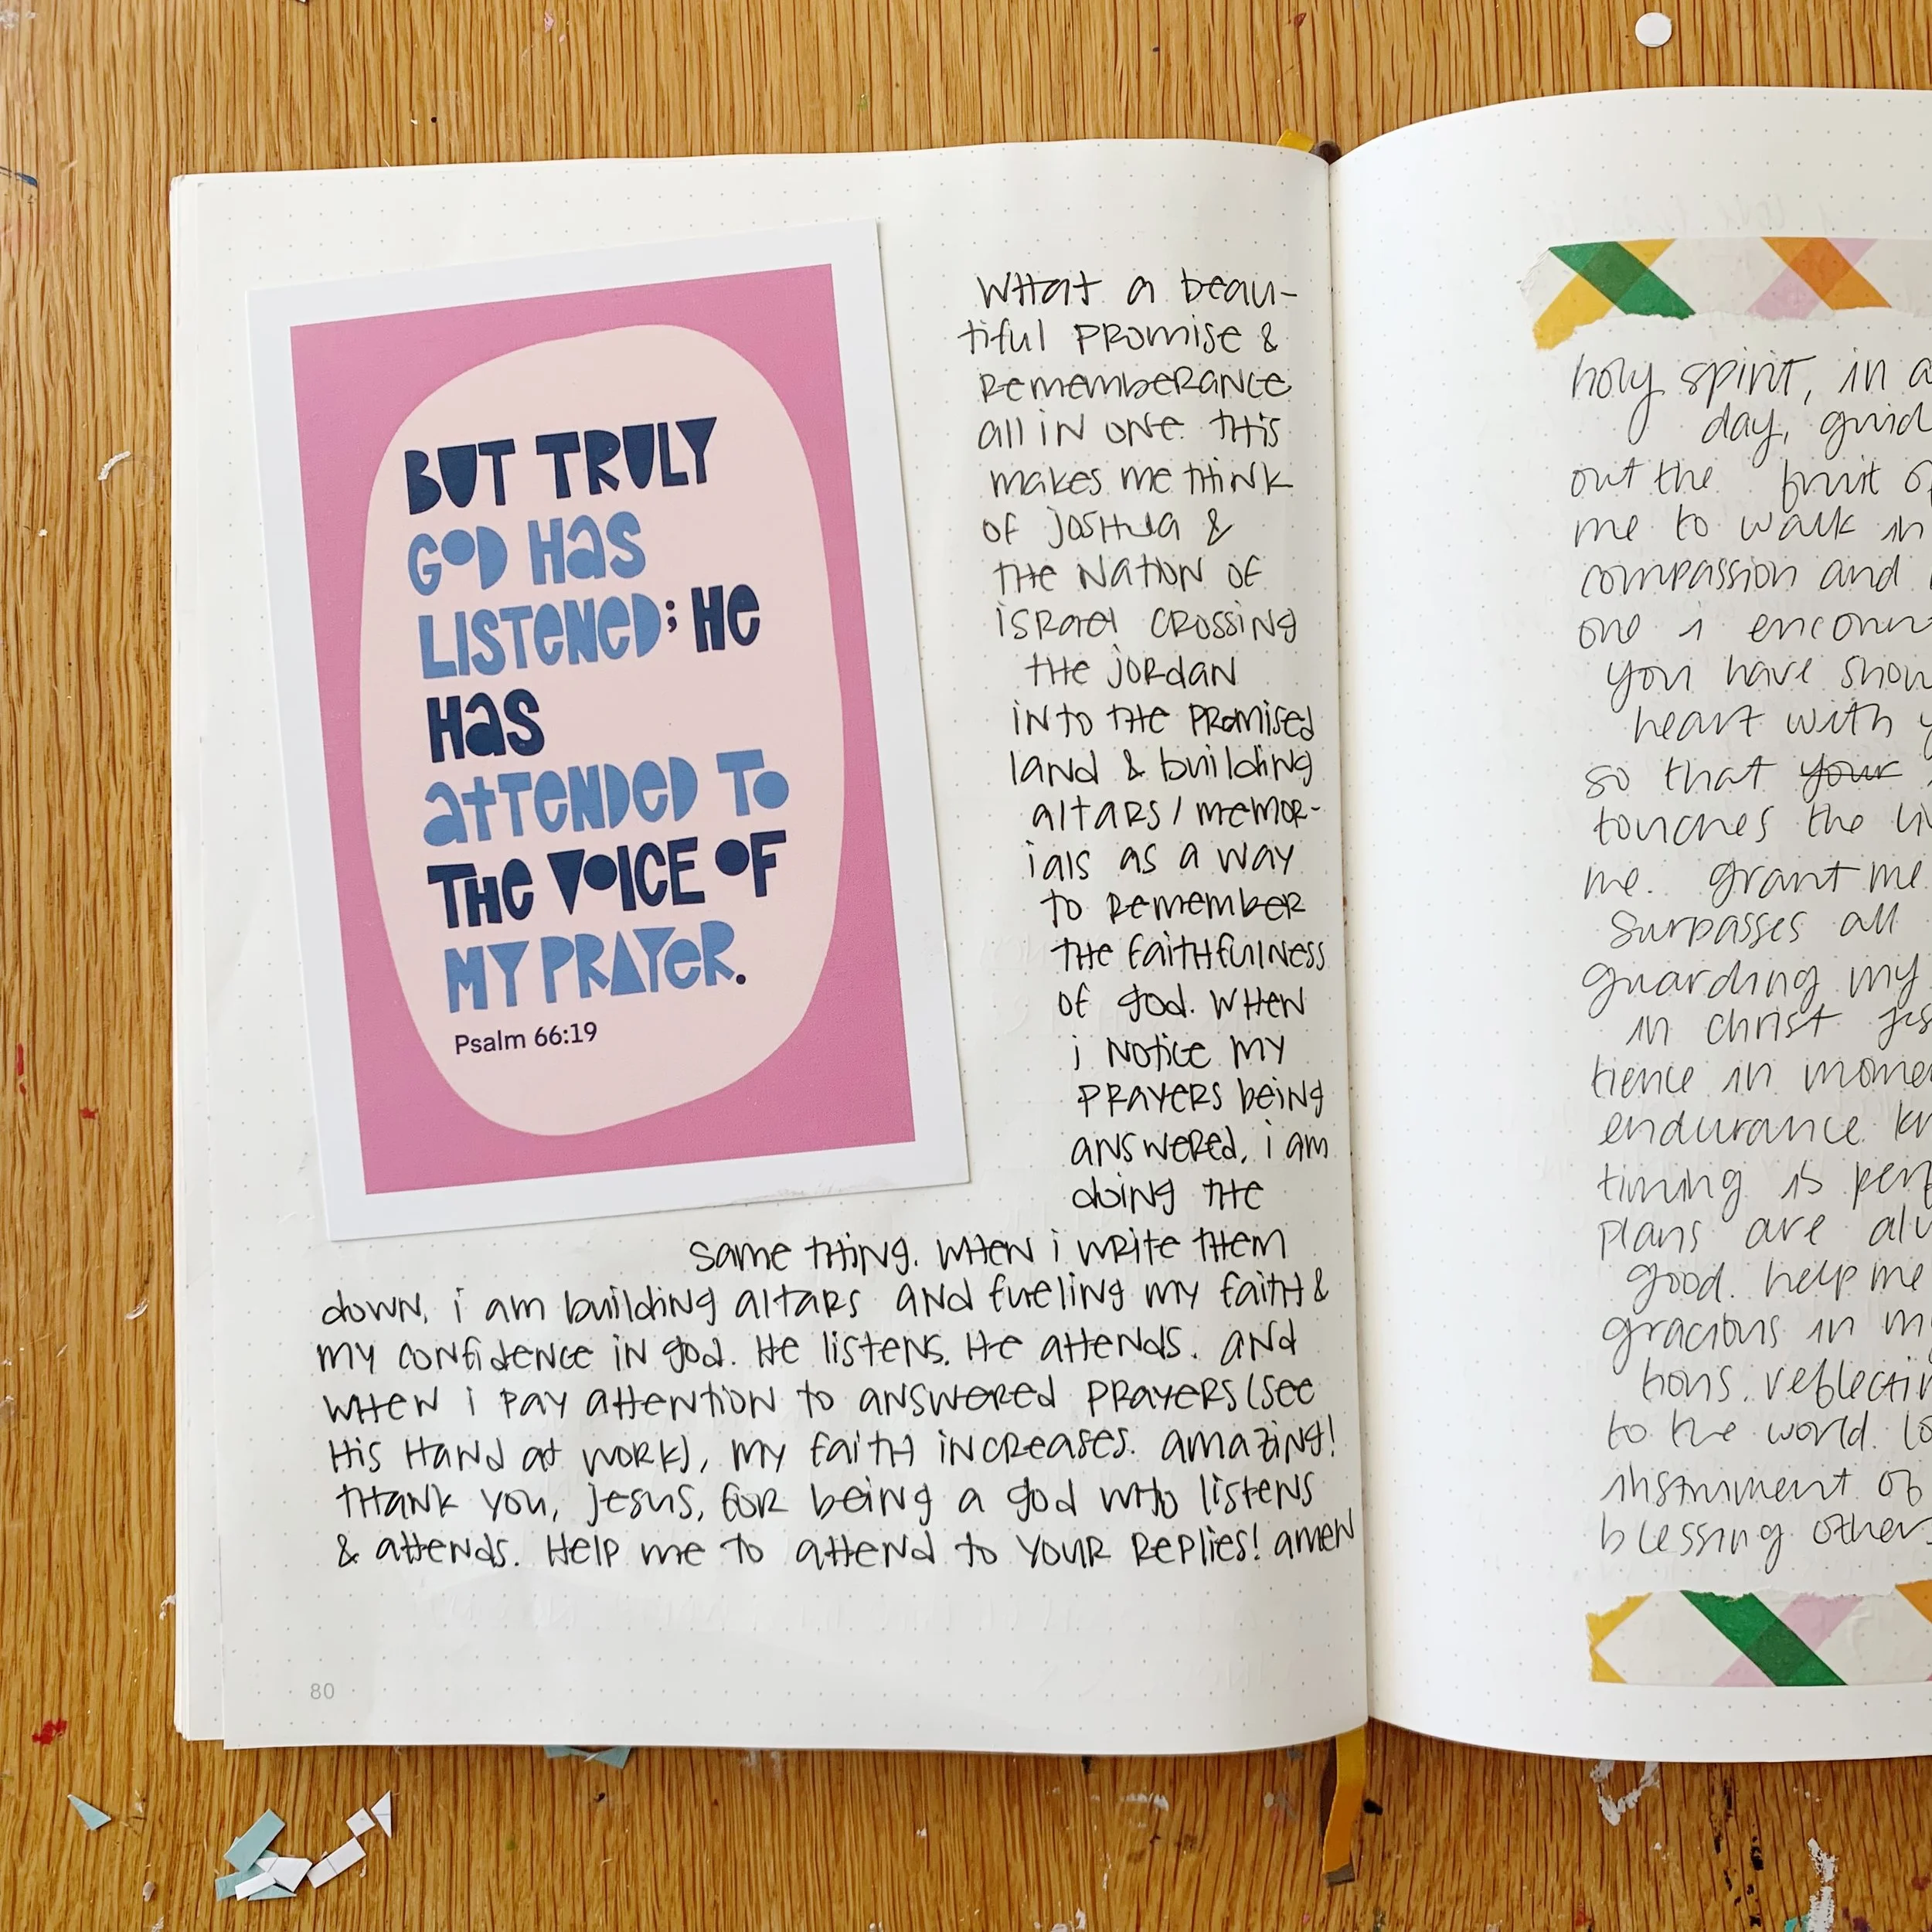 BUT TRULY
GOD Has
LISTeNeD; He
Has
aTTeNDeD To
THe VOICE OF
MY PRAYeR.
Psalm 66:19
What a beau-
tiful promise &
rememberance
all in one. this
makes me think
of joshua &
the nation of
israel crossing
the jordan
into the promised
land & building
altars/memor-
ials as a way
to remember
the faithfulness
of god. when
i notice my
prayers being
answered, i am
doing the
same thing. when i write them
down, i am building altars and fueling my faith &
my confidence in god. He listens. He attends. and
when i pay attention to answered prayers (see
His Hand at work), my faith increases. amazing!
thank you, jesus, for being a god who listens
& attends. Help me to attend to your replies! amen
80
holy spirit, in a
day, guid
out the fruit of
me to walk in
compassion and
one i encount
you have show
heart with y
so that your
touches the liv
me. grant me
surpasses all
guarding my
in christ jes
tience in momen
endurance kn
timing is perf
plans are alw
good. help me
gracious in my
tions. reflectin
to the world. lo
instrument of
blessing others